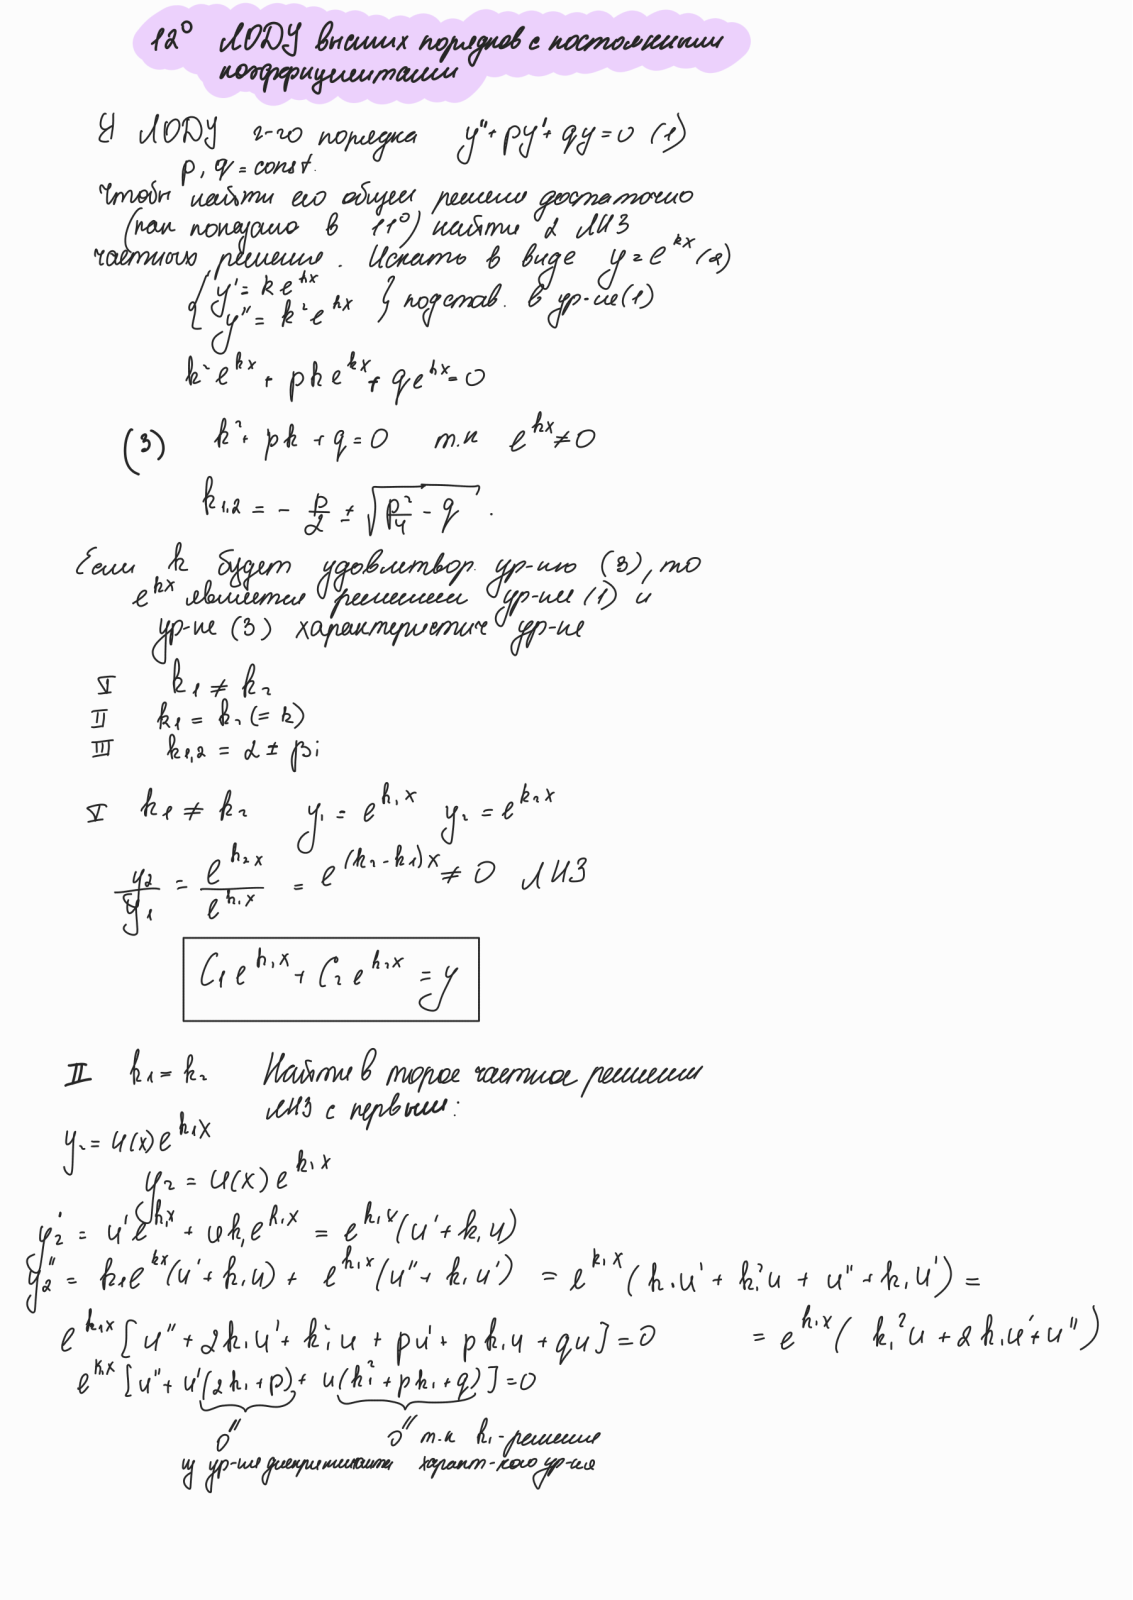 12° ЛОДУ высших порядков с постоянными
коэффициентами
ЛОДУ 2-го порядка y'' + py' + qy = 0 (1)
p, q = const.
Чтобы найти его общее решение достаточно
(как показано в 11°) найти 2 ЛНЗ
частного решение. Искать в виде y = e^{kx} (2)
{ y' = k e^{kx}
y'' = k² e^{kx} } подстав. в ур-ие (1)
k² e^{kx} + pk e^{kx} + q e^{kx} = 0
(3) k² + pk + q = 0 т.к e^{kx} ≠ 0
k_{1,2} = - p/2 ± √(p²/4 - q).
Если k будет удовлетвор. ур-ию (3), то
e^{kx} является решением ур-ие (1) и
ур-ие (3) характеристич ур-ие
I k₁ ≠ k₂
II k₁ = k₂ (= k)
III k_{1,2} = α ± βi
I k₁ ≠ k₂ y₁ = e^{k₁x} y₂ = e^{k₂x}
y₂/y₁ = e^{k₂x}/e^{k₁x} = e^{(k₂-k₁)x} ≠ 0 ЛНЗ
C₁ e^{k₁x} + C₂ e^{k₂x} = y
II k₁ = k₂ Найти второе частное решение
ЛНЗ с первым:
y₂ = u(x) e^{k₁x}
y₂ = u(x) e^{k₁x}
y₂' = u' e^{k₁x} + uk₁ e^{k₁x} = e^{k₁x} (u' + k₁u)
y₂'' = k₁e^{kx} (u' + k₁u) + e^{k₁x} (u'' + k₁u') = e^{k₁x} (k₁u' + k₁²u + u'' + k₁u') =
e^{k₁x} [u'' + 2k₁u' + k₁²u + pu' + pk₁u + qu] = 0 = e^{k₁x} (k₁²u + 2k₁u' + u'')
e^{k₁x} [u'' + u'(2k₁ + p) + u(k₁² + pk₁ + q)] = 0
0'' 0'' т.к k₁ - решение
из ур-ие дискриминанта характ-кого ур-ия